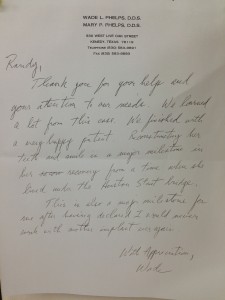 WADE L. PHELPS, D.D.S.
MARY P. PHELPS, D.D.S.
WEST LIVE OAK STREET
KENEDY, TEXAS 78119
TELEPHONE (830) 583-
FAX (830) 583-
Randy,
Thank you for your help and
your attention to our needs. We learned
a lot from this case. We finished with
a very happy patient. Reconstructing her
teeth and smile is a major milestone in
her recovery from a time when she
lived under the Houston Street bridge.
This is also a major milestone for
me after having declared I would never
work with another implant case again.
With Appreciation,
Wade